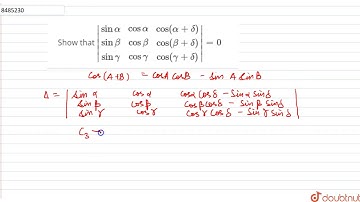 8485230
Show that | sin α cos α cos(α + δ) |
| sin β cos β cos(β + δ) | = 0
| sin γ cos γ cos(γ + δ) |
Cos (A+B) = CosA CosB - Sin A Sin B
Δ = | Sin α Cos α Cosα Cos δ - Sin α Sin δ |
| Sin β Cos β Cosβ Cos δ - Sin β Sin δ |
| Sin γ Cos γ Cos γ Cos δ - Sin γ Sin δ |
C3 →
doubtnut